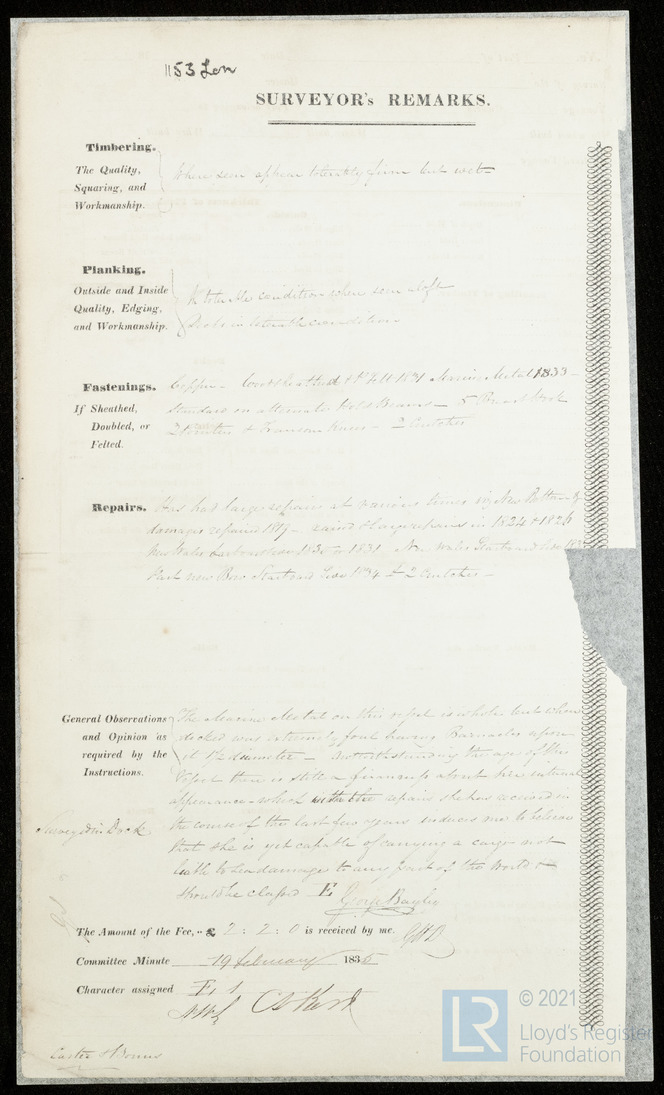 1153 Lon
SURVEYOR's REMARKS.
Timbering.
The Quality,
Squaring, and
Workmanship.
Where seen appear tolerably firm but wet
Planking.
Outside and Inside
Quality, Edging,
and Workmanship.
In tolerable condition where seen aloft
Decks in tolerable condition
Fastenings.
If Sheathed,
Doubled, or
Felted.
Copper - Wood sheathed & Felt 1831 Marine Metal 1833 -
Standard on alternate Hold Beams - 5 Breasthook
& Transom Knees - 2 Crutches
Repairs.
Has had large repairs at various times viz New
damages repaired 1819 - and large repairs in 1824 & 1826
New Wales 1831 New Wales Starboard Side
Part new Bow Starboard Side 1834 & 2 Crutches -
General Observations
and Opinion as
required by the
Instructions.
The Marine Metal on this vessel is whole but when
docked was extremely foul having Barnacles upon
it 1½ diameter - notwithstanding the age of this
Vessel there is still a firmness about her internal
appearance which with the repairs she has received in
the course of the last few years induces me to believe
that she is yet capable of carrying a cargo not
liable to sea damage to any part of the World &
should be classed E
Surveyed in Dock
George Bayley
The Amount of the Fee, - £ 2 : 2 : 0 is received by me.
GHB
Committee Minute 19 February 1835
Character assigned E, 1
© 2021
LR
Lloyd's Register
Foundation